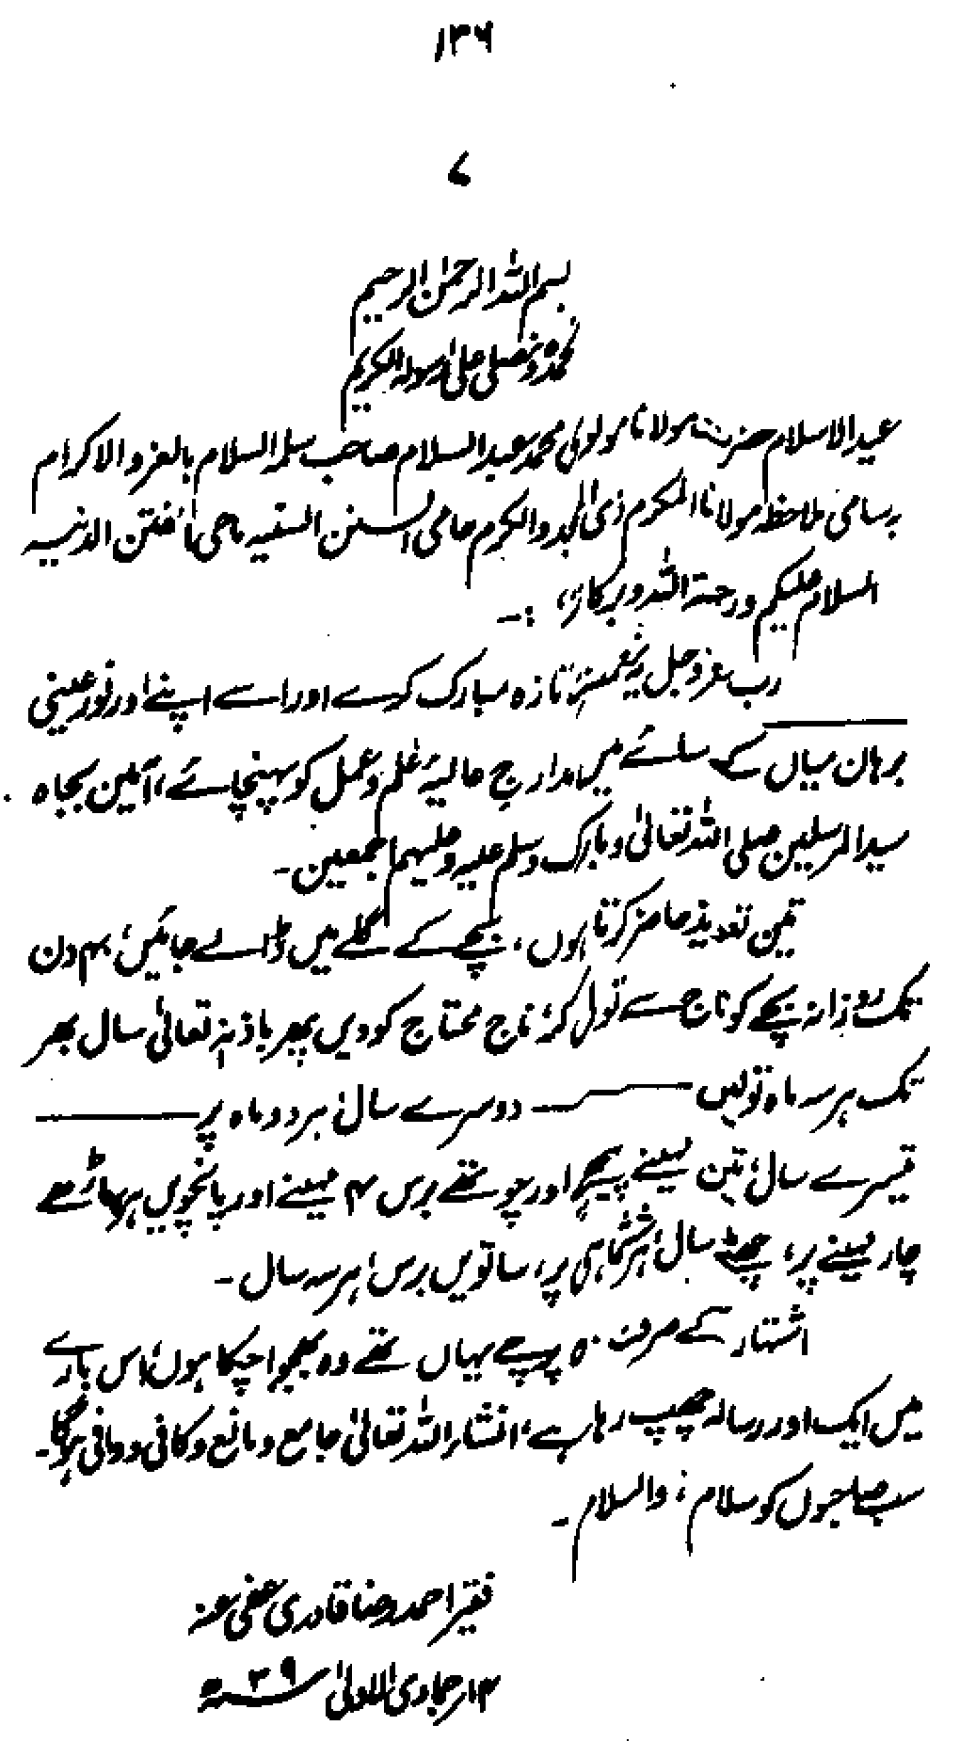 ۱۳۶
۷
بسم اللہ الرحمٰن الرحیم
نحمدہٗ ونصلی علیٰ رسولہ الکریم
عیدالاسلام حضرت مولانا مولوی محمد عبدالسلام صاحب سلمہ السلام بالعز و الاکرام
بہ سامی ملاحظہ مولانا المکرم ذی المجد والکرم حامی السنن السنیہ ماحی الفتن الدنیہ
السلام علیکم ورحمۃ اللہ وبرکاتہٗ :۔
رب عزوجل یہ نعمت تازہ مبارک کرے اور اسے اپنے اور نور عینی
برہان میاں کے سائے میں مدارج عالیۂ علم و عمل کو پہنچائے، آمین بجاہ
سید المرسلین صلی اللہ تعالیٰ وبارک وسلم علیہ وعلیہم اجمعین۔
تین تعویذ حاضر کرتا ہوں، بچے کے گلے میں ڈالے جائیں، ۴۰ دن
تک روزانہ بچے کو ناج سے تول کر، ناج محتاج کو دیں پھر باذنہٖ تعالیٰ سال بھر
تک ہر سہ ماہ تولیں ـــــ دوسرے سال، ہر دو ماہ پر ـــــ
تیسرے سال، تین مہینے پیچھے اور چوتھے برس ۴ مہینے اور پانچویں ہر ساڑھے
چار مہینے پر، چھٹے سال، ہر ششماہی پر، ساتویں برس، ہر سہ سال۔
اشتہار کے صرف ۵۰ پرچے یہاں تھے وہ بھجوا چکا ہوں، اس بارے
میں ایک اور رسالہ چھپ رہا ہے، انشاء اللہ تعالیٰ جامع و مانع و کافی و وافی ہوگا۔
سب صاحبوں کو سلام، والسلام۔
فقیر احمد رضا قادری عفی عنہ
۱۳؍ جمادی الاولیٰ ۳۹ ھ